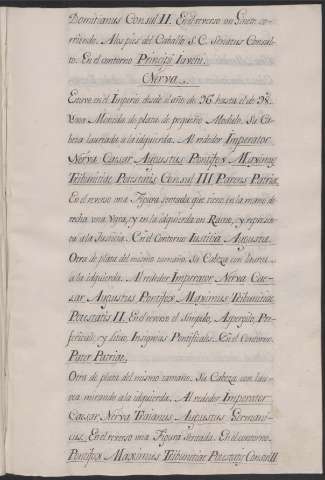 Domitianus Consul II. En el reverso un Ginete co-
rriendo. A los pies del Caballo S.C. Senatus Consul-
to. En el contorno Princeps Iuventi.
Nerva.
Estuvo en el Imperio desde el año de 96. hasta el de 98.
Una Moneda de plata de pequeño Modulo. Su Ca-
beza laureada a la izquierda. Al rededor Imperator
Nerva Caesar Augustus Pontifex Maximus
Tribunitiae Potestatis Consul III Parens Patriae
En el reverso una Figura sentada que tiene en la mano de-
recha una Vara, y en la izquierda un Ramo, y represen-
ta a la Justicia. En el Contorno Iustitia Augusta.
Otra de plata del mismo tamaño. Su Cabeza con laurea
a la izquierda. Al rededor Imperator Nerva Cae-
sar Augustus Pontifex Maximus Tribunitiae
Potestatis II. En el reverso el Simpulo, Aspergilo, Pre-
fericulo, y Lituo, Insignias Pontificales. En el Contorno
Pater Patriae.
Otra de plata del mismo tamaño. Su Cabeza con lau-
rea mirando a la izquierda. Al rededor Imperator
Caesar Nerva Traianus Augustus Germani-
cus. En el reverso una Figura sentada. En el contorno
Pontifex Maximus Tribunitiae Potestatis Consul II